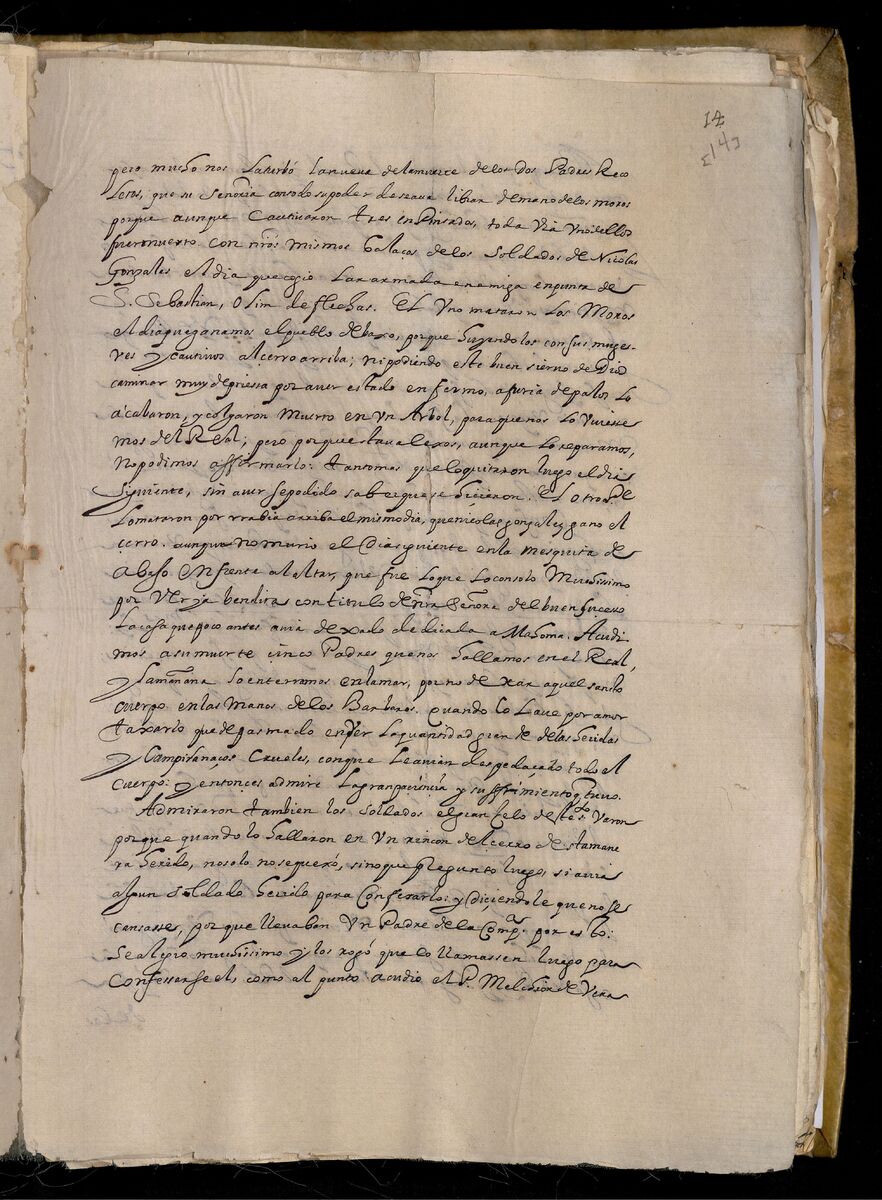 14
[14]
pero mucho nos la turbó la nueva de la muerte de los dos Padres Reco
letos, que su Señoria con todo su poder deseaua librar de mano de los moros
porque aunque cautiuaron tres en Pintados, toda via vno dellos
fue muerto con nr̃os mismos balaços de los soldados de Nicolas
Gonzales el dia que cogio la armada enemiga en punta de
S. Sebastian, o sim de flechas. El vno mataron los Moros
el dia que ganamos el pueblo de baxo, porque huyendo los con sus muge-
res y cautiuos al cerro arriba; ni podiendo este buen sieruo de Dios
caminar muy depriessa por auer estado enfermo, a furia de palos lo
acabaron, y colgaron muerto en vn Arbol, para que nos lo viesse
mos del Real; pero porque staua lexos, aunque lo reparamos,
no podimos affirmarlo: tan somos que lo quitaron luego el dia
siguiente, sin auer se podido saber que se hizieron. El otro P.e
lo mataron por rrabia arriba el mismo dia, que nicolas gonzalez gano el
çerro. aunque no murio el dia siguiente en la mesquita de
abaso enfrente al altar, que fue lo que lo consolo Muchissimo
por ver ya bendita con titulo de nr̃a Señora del buen suceso
la casa que poco antes auia dexado dedicada a Mahoma. Acudi
mos a su muerte çinco Padres que nos hallamos en el Real,
y la mañana lo enterramos en la mar, por no dexar aquel santo
cuerpo en las Manos de los Barbaros. quando lo laue por amor
taxarlo quede pasmado en ver la quantidad grande de las heridas
y Campilanaços Crueles, con que le auian despedaçado todo el
cuerpo: y entonçes admire la gran paciençia y suffrimiento q̃ tuuo.
Admiraron tambien los soldados el gran zelo deste s.to Varon
porque quando lo hallaron en vn rincon del cerro de sta mane
ra herido, no solo no se quexó, sino que pregunto luego, si auia
algun soldado herido para Confesarlo: y diçiendole que no se
cansasse, porque lleuaban vn Padre de la Comp.a por esto:
se alegro muchissimo y los rogó que lo llamassen luego para
confessarse el, como al punto acudio el P. Melchior de Vera